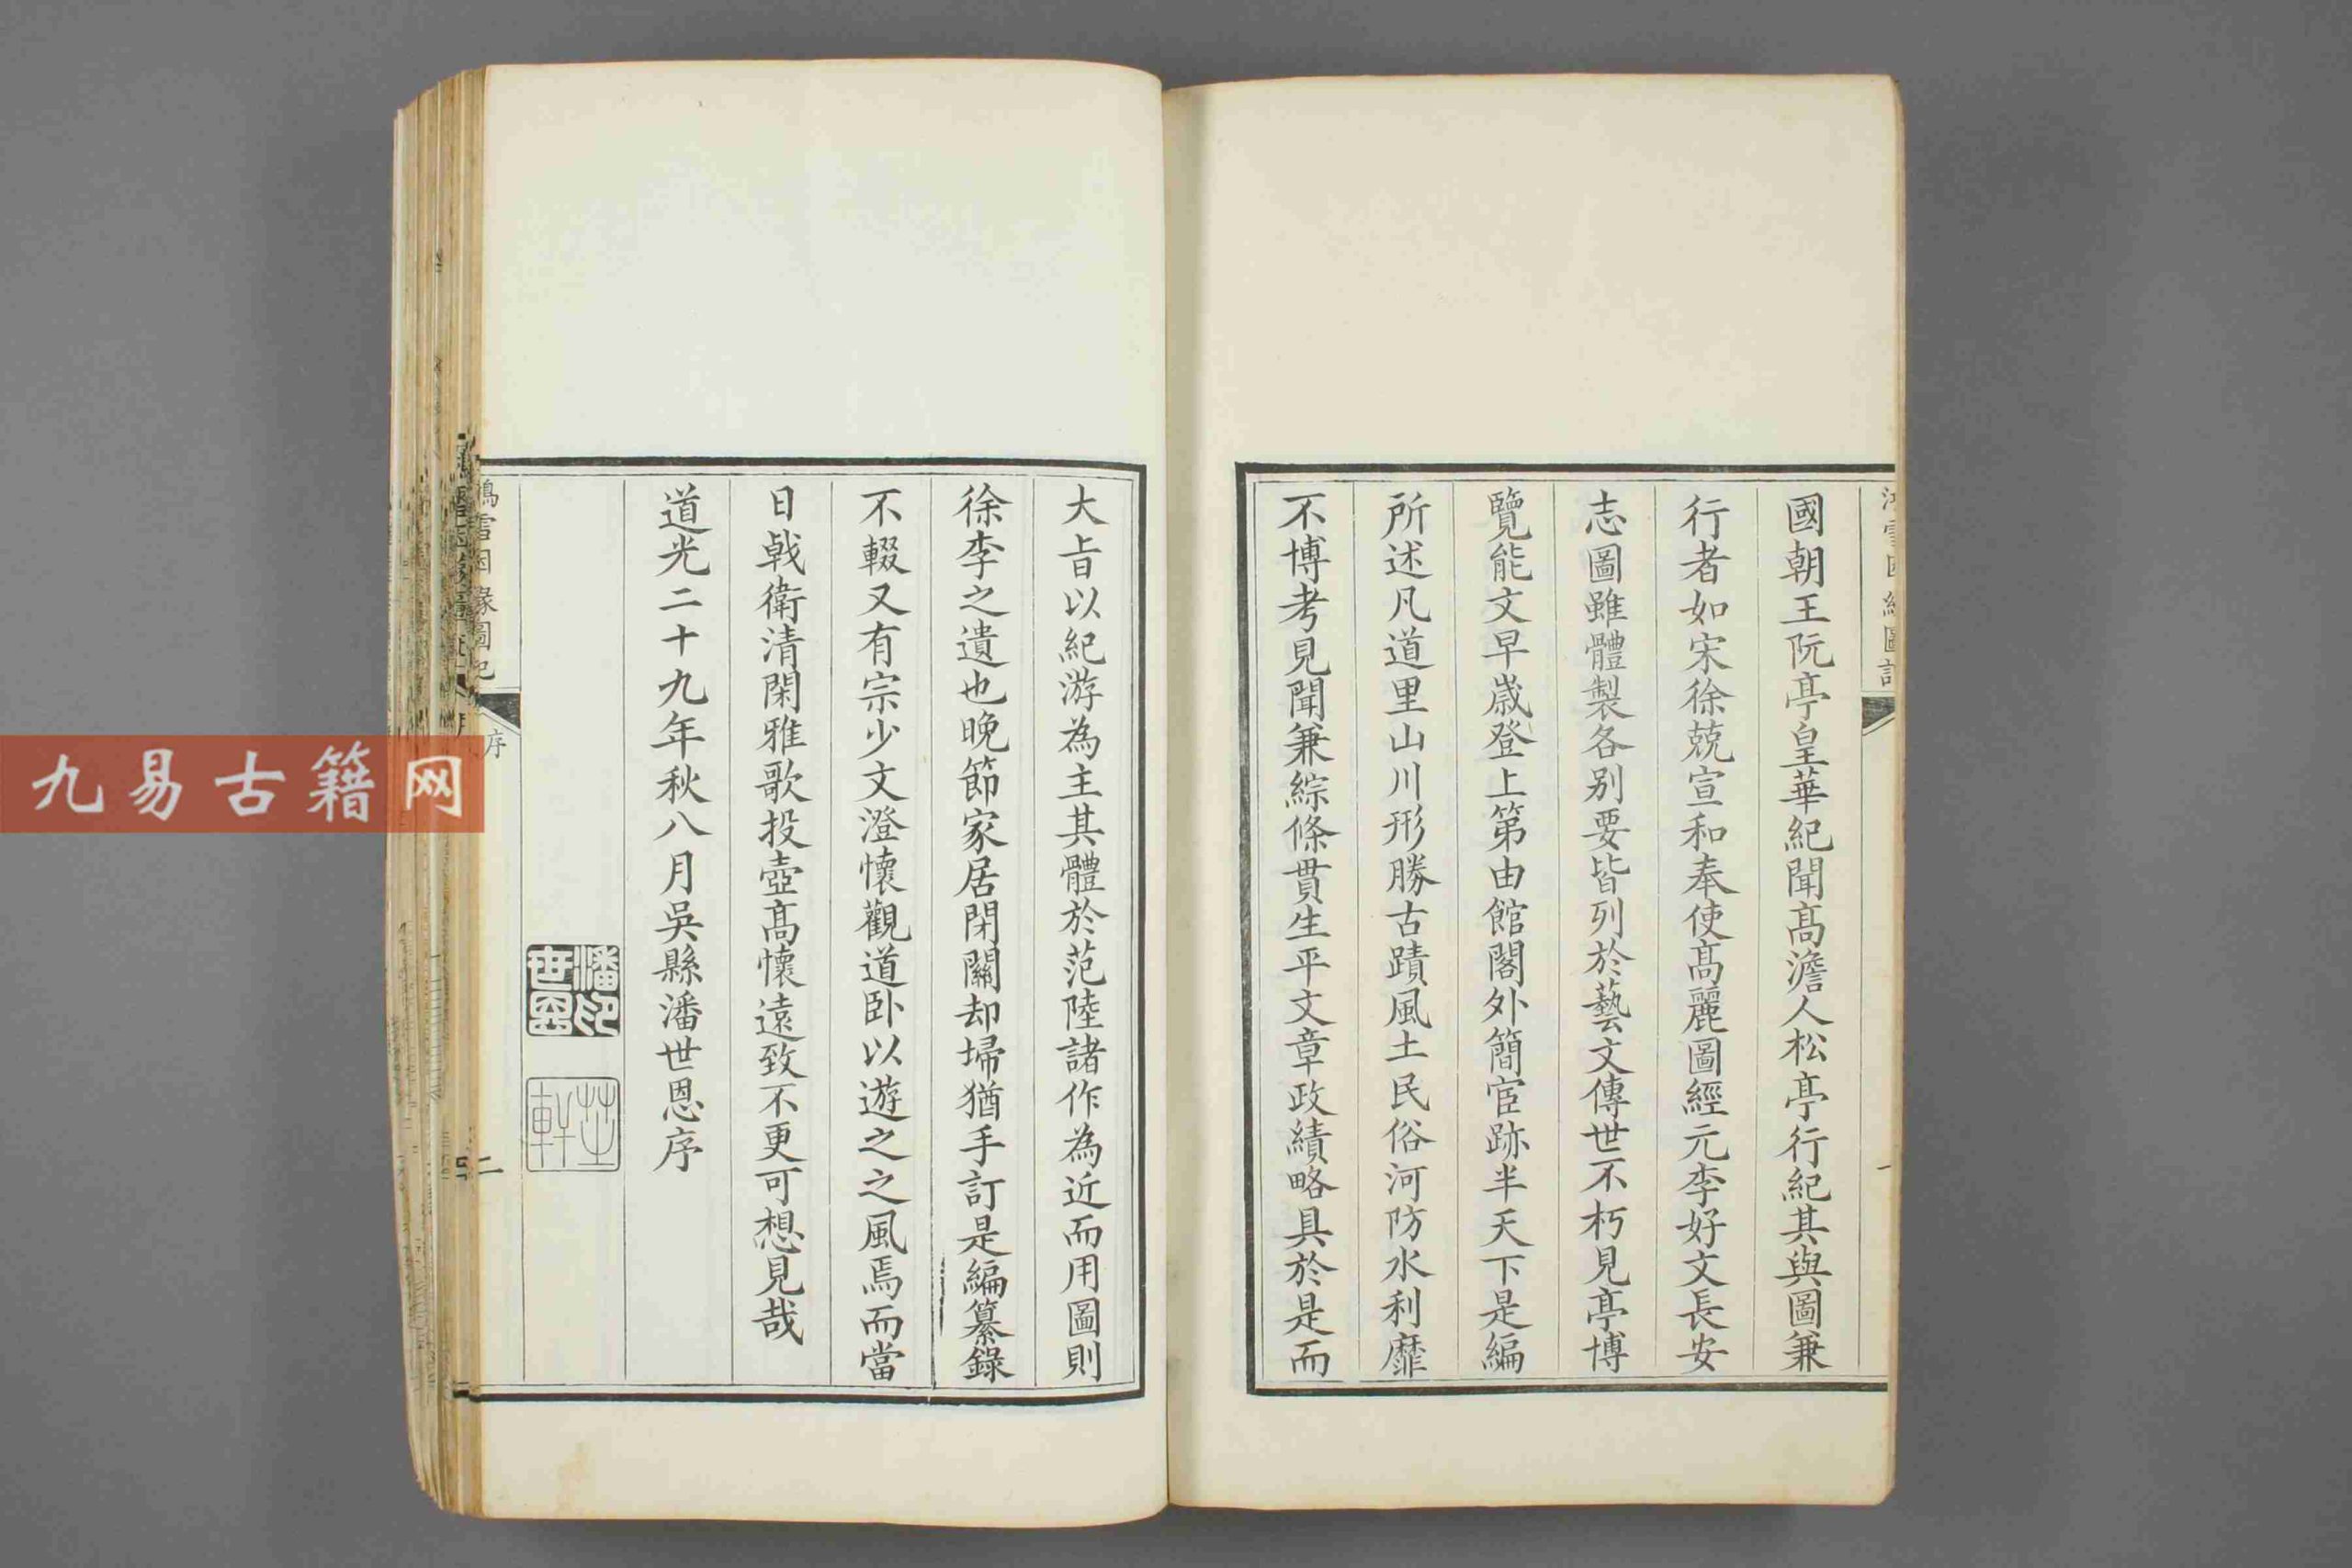 國朝王阮亭皇華紀聞高澹人松亭行紀其與圖兼
行者如宋徐兢宣和奉使高麗圖經元李好文長安
志圖雖體製各别要皆列於藝文傳世不朽見亭博
覽能文早歲登上第由館閣外簡宦跡半天下是編
所述凡道里山川形勝古蹟風土民俗河防水利靡
不博考見聞兼綜條貫生平文章政績略具於是而
大旨以紀游為主其體於范陸諸作為近而用圖則
徐李之遺也晚節家居閉關却埽猶手訂是編纂錄
不輟又有宗少文澄懷觀道卧以遊之之風焉而當
日戟衛清閑雅歌投壺高懷遠致不更可想見哉
道光二十九年秋八月吳縣潘世恩序
潘印世恩
芝軒
鴻雪因緣圖記 序 二
九易古籍网